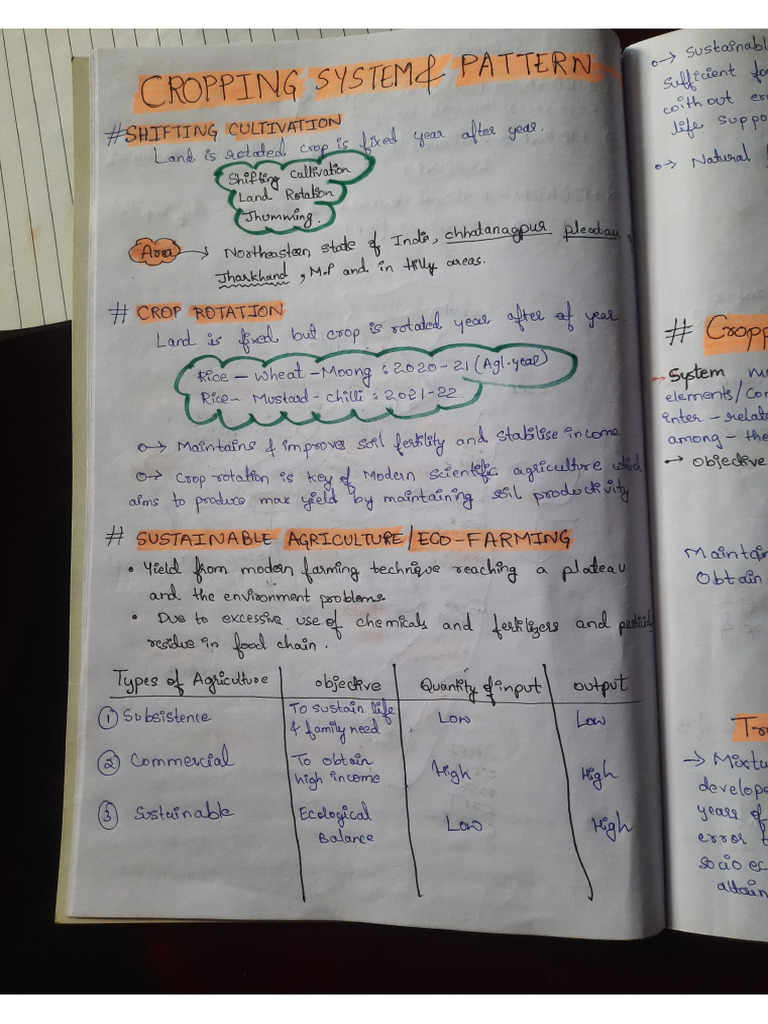 CROPPING SYSTEM & PATTERN
# SHIFTING CULTIVATION
Land is rotated crop is fixed year after year.
Shifting Cultivation
Land Rotation
Jhumming.
Area → Northeastern state of India, chhatanagpur
Jharkhand, M.P and in Hilly areas.
# CROP ROTATION
Land is fixed but crop is rotated year after of year.
Rice - Wheat - Moong : 2020-21 (Agl-year)
Rice - Mustard - chilli : 2021-22
→ Maintains & improves soil fertility and stabilise income
→ Crop rotation is key of Modern Scientific agriculture which
aims to produce max yield by maintaining soil productivity
# SUSTAINABLE AGRICULTURE/ECO-FARMING
• Yield from modern farming technique reaching a plateau
and the environment problems
• Due to excessive use of chemicals and fertilizers and
residue in food chain.
Types of Agriculture objective Quantity of input output
① Subsistence To sustain life & family need Low Low
② Commercial To obtain high income High High
③ Sustainable Ecological Balance Low High
→ Sustainabl
sufficient fo
without er
life suppo
→ Natural
# Cropp
→ System
elements/con
inter-relat
among-the
→ objective
Maintain
Obtain
Tr
→ Mixtu
develope
years of
error
socio ec
attain